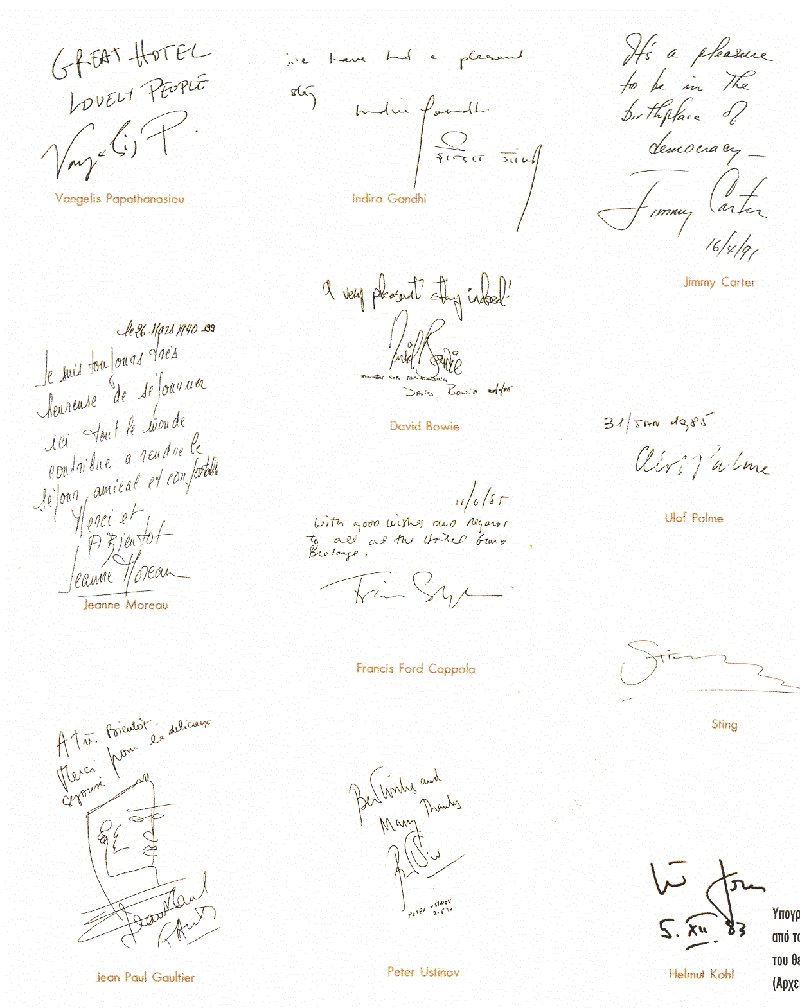 GREAT HOTEL
LOVELY PEOPLE
Vangelis P.
Vangelis Papathanasiou
we have had a pleasant
stay
Indira Gandhi
इन्दिरा गांधी
Indira Gandhi
It's a pleasure
to be in the
birthplace of
democracy—
Jimmy Carter
16/4/91
Jimmy Carter
le 26 Mars 1990
Je suis toujours très
heureuse de séjourner
ici tout le monde
contribue a rendre le
séjour amical et confortable
Merci et
A Bientot
Jeanne Moreau
Jeanne Moreau
A very pleasant stay indeed!
David Bowie
David Bowie
David Bowie
11/6/85
With good wishes and regards
to all at the
Francis Ford Coppola
1985
Olof Palme
Ulof Palme
Sting
Sting
A Très Bientôt
Merci pour le délicieux
Jean Paul
Jean Paul Gaultier
Best Wishes and
Many Thanks
PETER USTINOV
Peter Ustinov
5. XII. 83
Helmut Kohl
Υπογρ
από το
του θε
(Αρχε